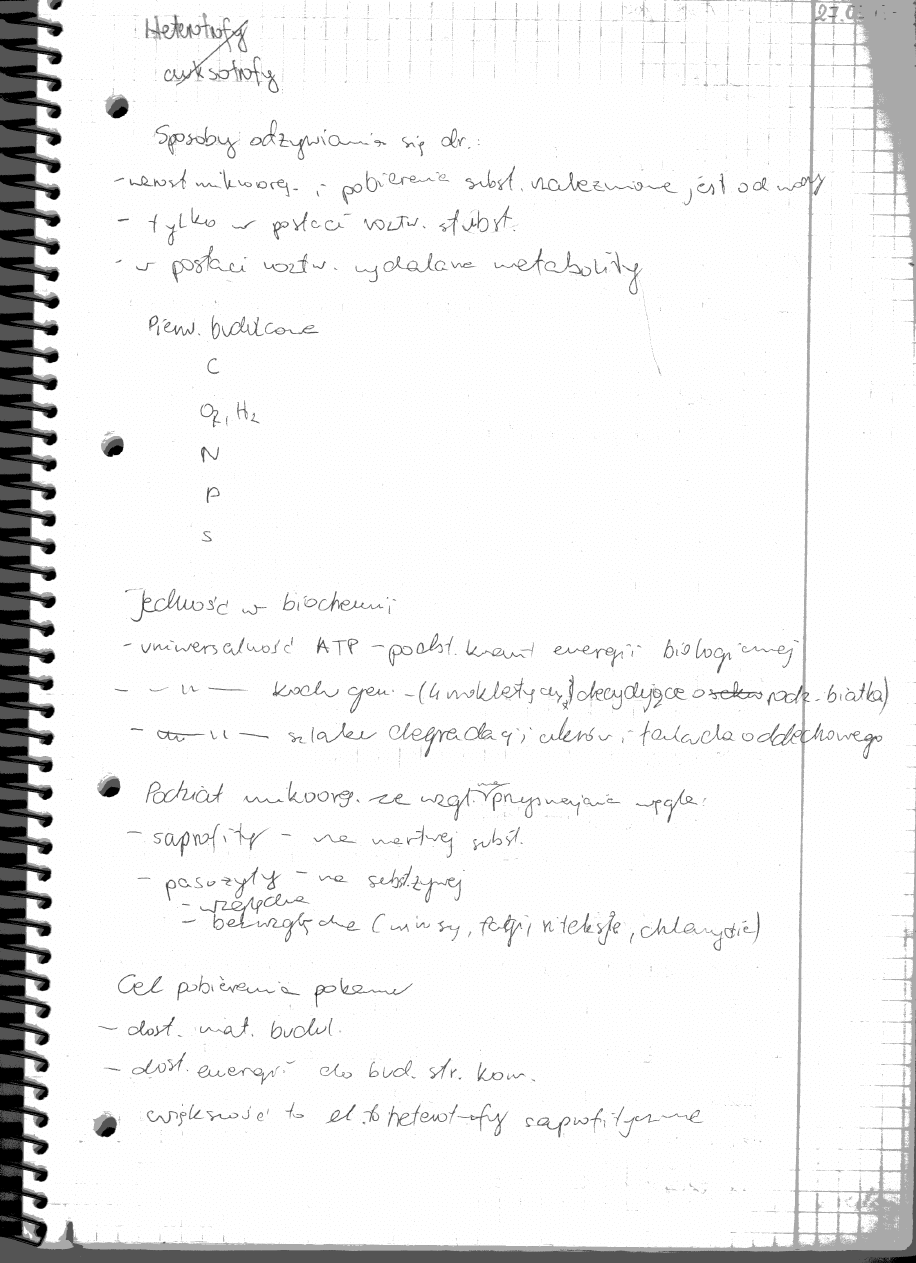 27.0
Heterotrofy
auksotrofy
Sposoby odżywiania się dr.:
- wzrost mikroorg. i pobieranie subst. uzależnione jest od wody
- tylko w postaci roztw. subst.
- w postaci roztw. wydalane metabolity
Pierw. budulcowe
C
O2, H2
N
P
S
Jedność w biochemii
- uniwersalność ATP - podst. kwant energii biologicznej
- - 11 - kodu gen. - ( decydujące o podz. białka)
- - 11 - szlaków degradacji cukrów i łańcucha oddechowego
Podział mikroorg. ze wzgl. na przyswajanie węgla:
- saprofity - na martwej subst.
- pasożyty - na subst. żywej
- względne
- bezwzględne (wirusy, fagi, riteksje, chlamydie)
Cel pobierania pokarmu
- dost. mat. budul.
- dost. energii do bud. str. kom.
większość to heterotrofy saprofityczne